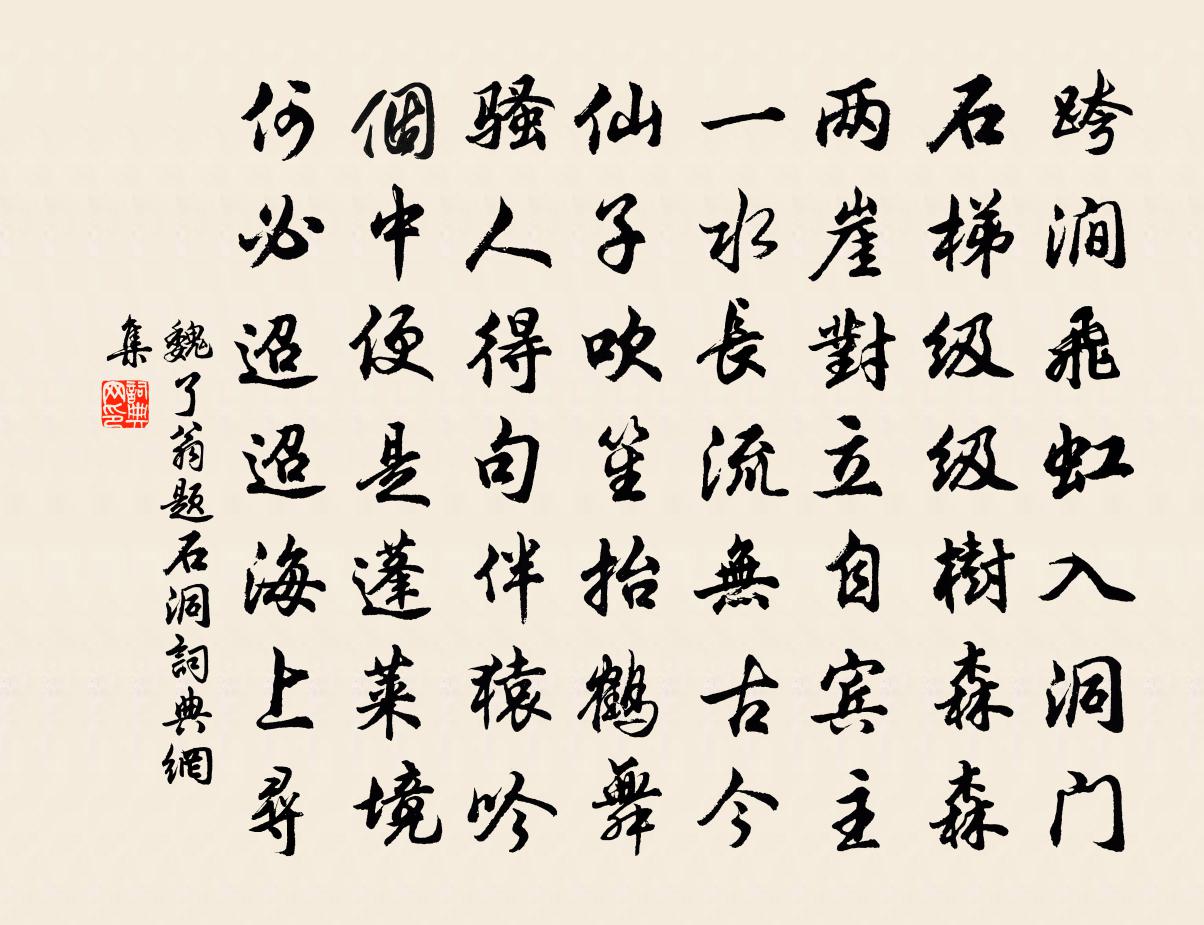 跨澗飛虹入洞门
石梯级级樹森森
两崖對立自宾主
一水長流無古今
仙子吹笙抬鶴舞
騷人得句伴猿吟
個中便是蓬莱境
何必迢迢海上尋
魏了翁题石洞詞典網
集
詞典
网印